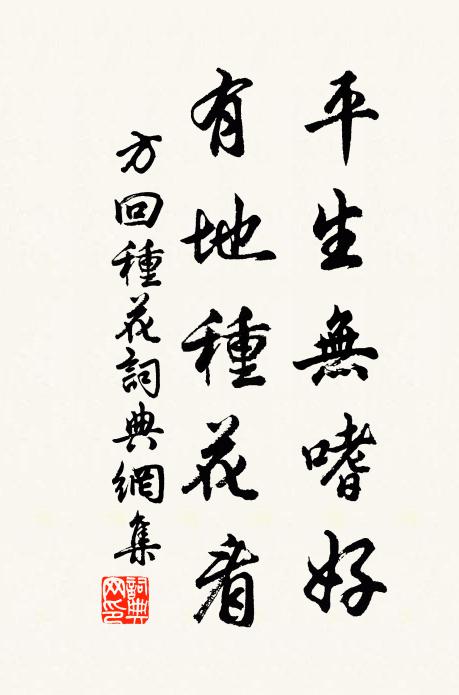 平生無嗜好
有地種花看
方回種花詞典網集
詞典网印